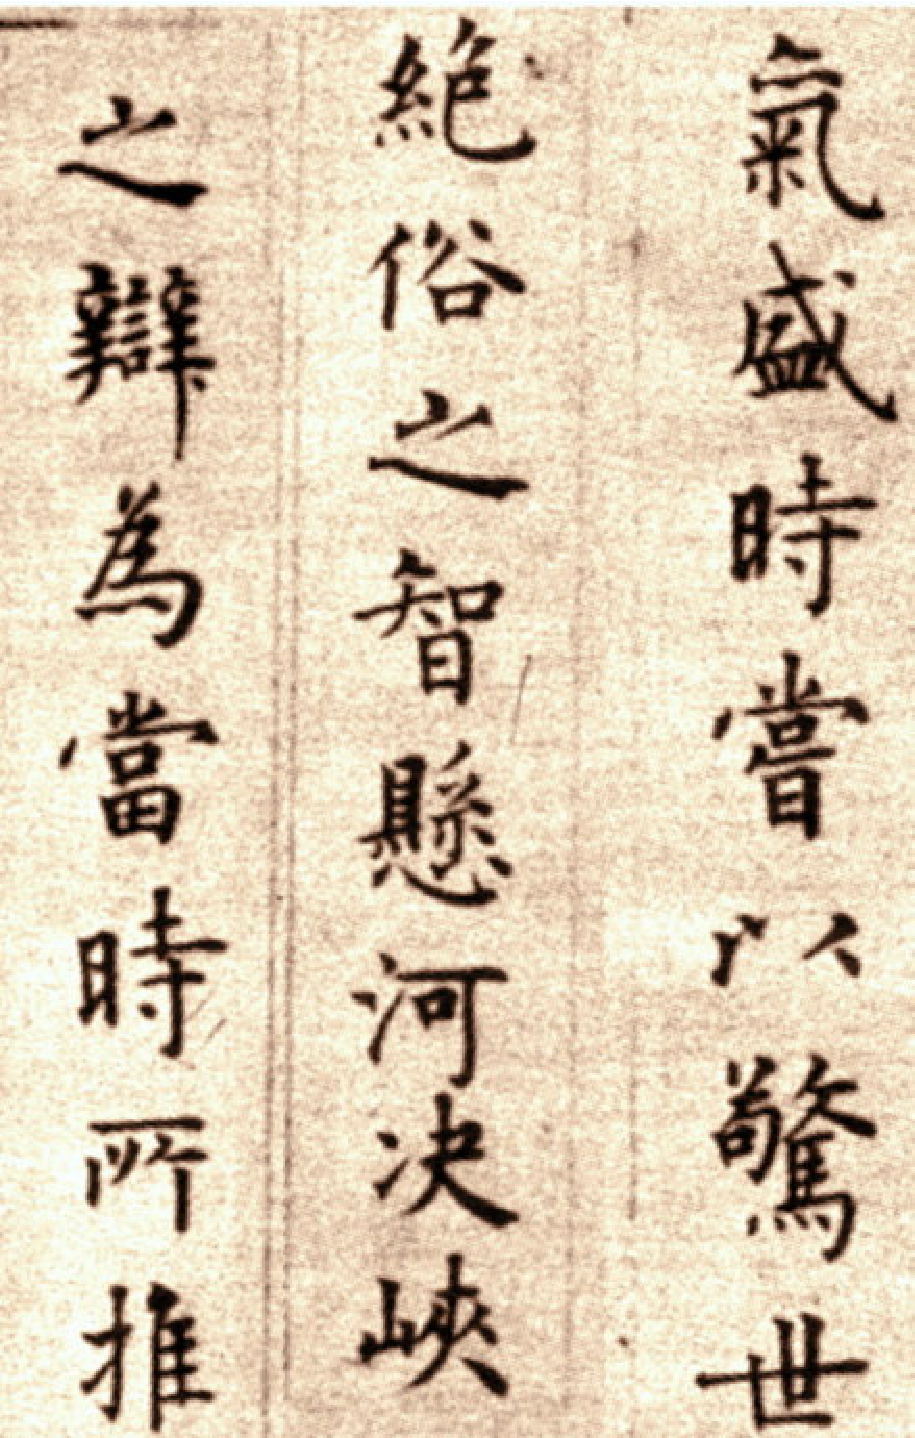 氣盛時嘗以驚世
絶俗之智懸河决峽
之辯為當時所推